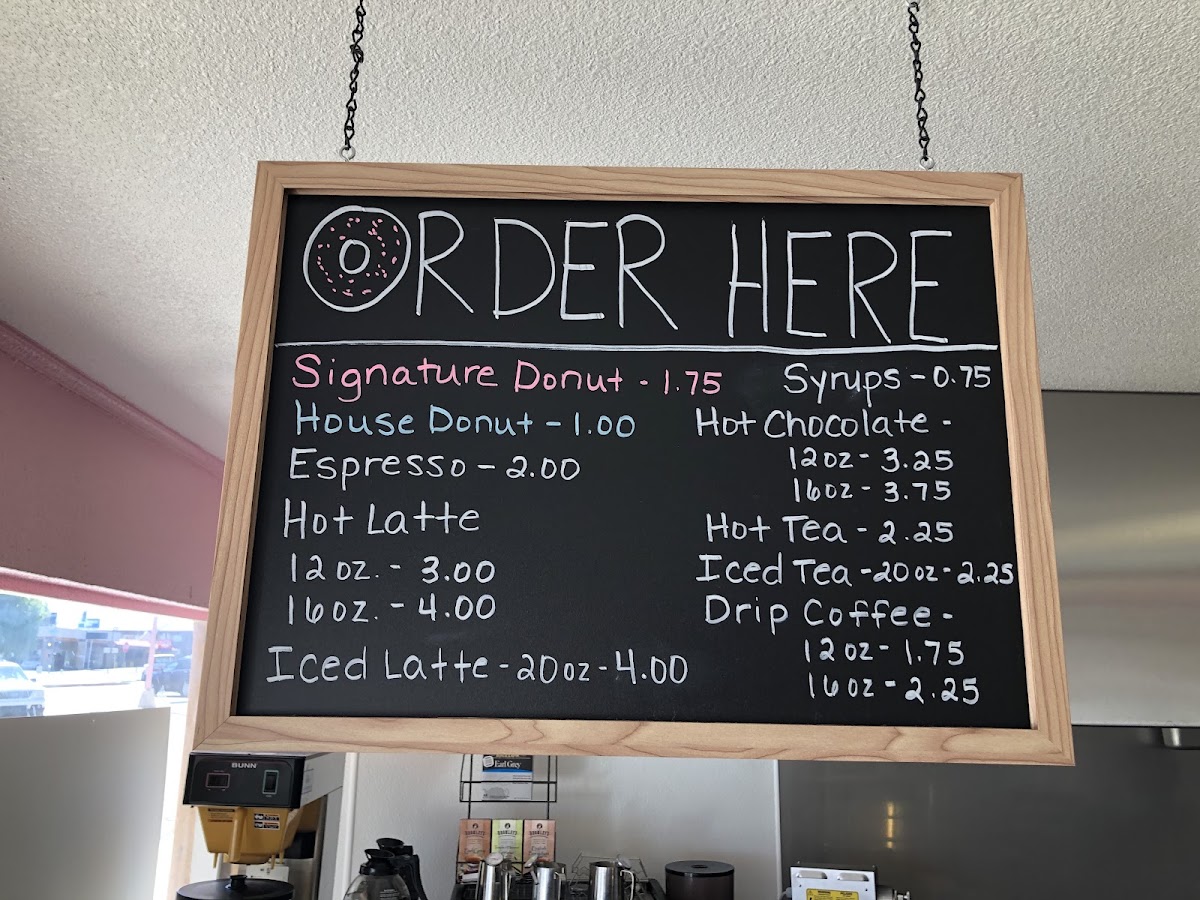 ORDER HERE
Signature Donut - 1.75
House Donut - 1.00
Espresso - 2.00
Hot Latte
12 oz. - 3.00
16 oz. - 4.00
Iced Latte - 20 oz - 4.00
Syrups - 0.75
Hot Chocolate -
12 oz - 3.25
16 oz - 3.75
Hot Tea - 2.25
Iced Tea - 20 oz - 2.25
Drip Coffee -
12 oz - 1.75
16 oz - 2.25
BUNN
Earl Grey